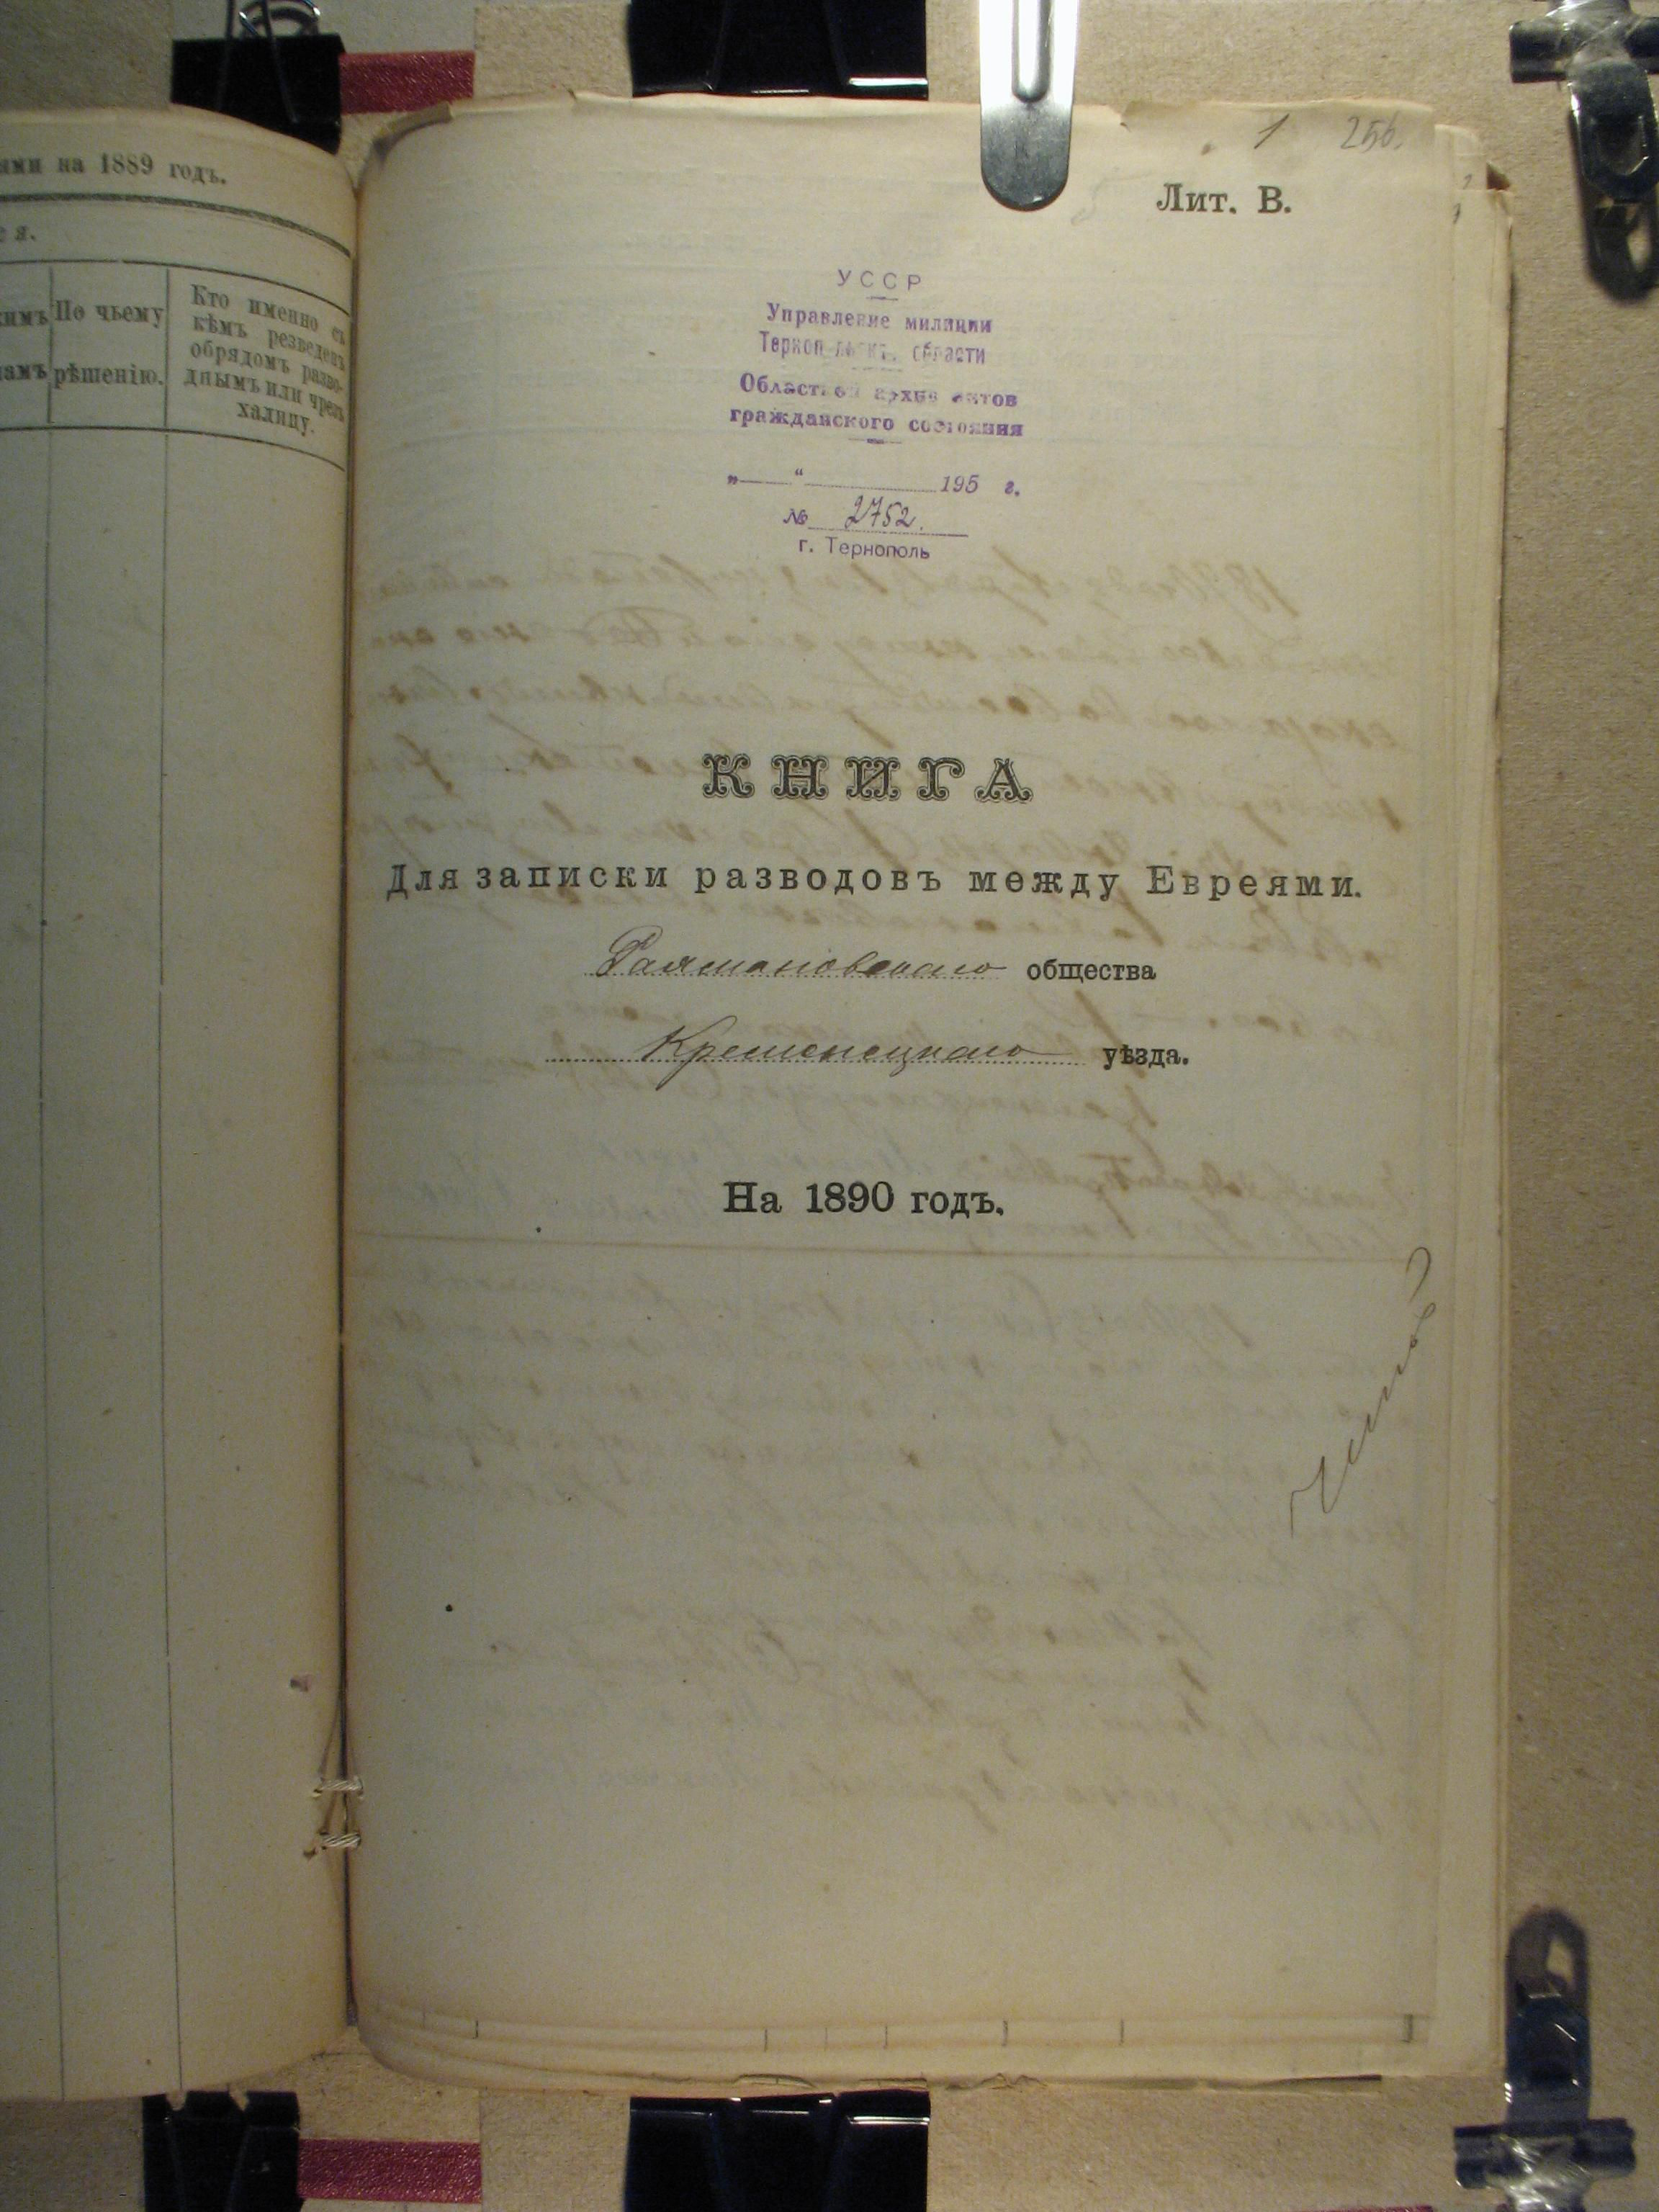 на 1889 годъ.
По чьему
рѣшенію.
Кто именно съ
кѣмъ резведенъ
обрядомъ разво-
днымъ или чрезъ
халицу.
1 256.
Лит. В.
УССР
Управление милиции
Тернопольск. области
Областной архив актов
гражданского состояния
„ “ 195 г.
№ 2752.
г. Тернополь
КНИГА
Для записки разводовъ между Евреями.
общества
Кременецкаго уѣзда.
На 1890 годъ.